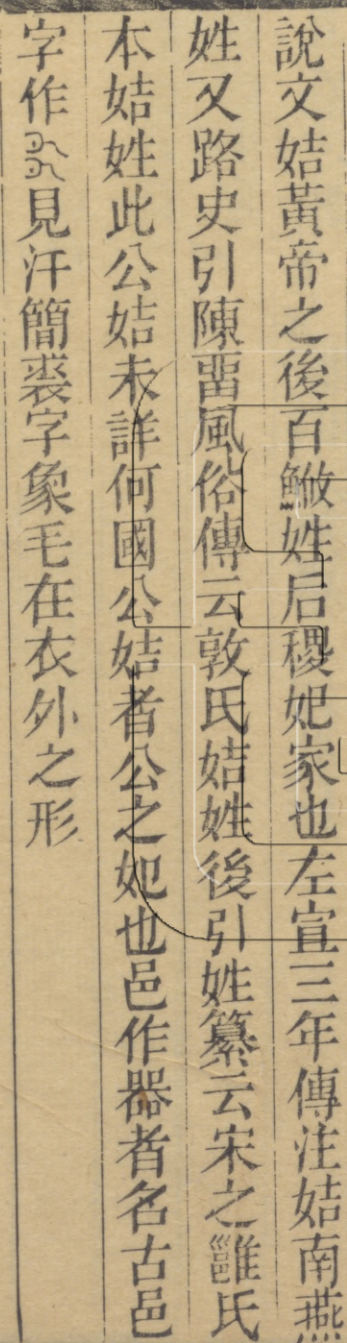 說文姞黃帝之後百鮍姓后稷妃家也左宣三年傳注姞南燕
姓又路史引陳畱風俗傳云敦氏姞姓後引姓纂云宋之雝氏
本姞姓此公姞未詳何國公姞者公之妃也邑作器者名古邑
字作見汗簡裘字象毛在衣外之形